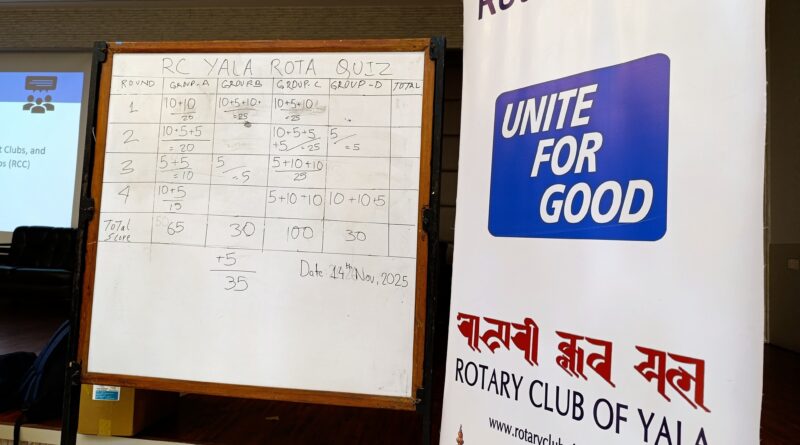 RC YALA ROTA QUIZ
ROUND GROUP-A GROUP.B GROUP.C GROUP-D TOTAL
1 10+10 10+5+10 10+5+10
20 =25 =25
2 10+5+5 10+5+5 5
=20 +5 =25 =5
3 5+5 5 5+10+10
=10 =5 25
4 10+5 5+10+10 10+10+5
15
Total Score 65 30 100 30
+5
35
Date 14th Nov, 2025
t Clubs, and
s (RCC)
UNITE
FOR
GOOD
ROTARY CLUB OF YALA
www.rotaryclub